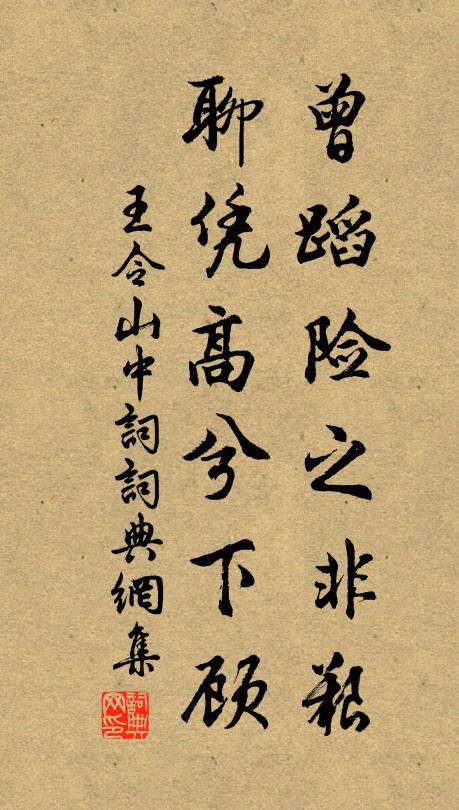 曾蹈险之非艰
聊凭高兮下顾
王令山中詞詞典網集
詞典网印